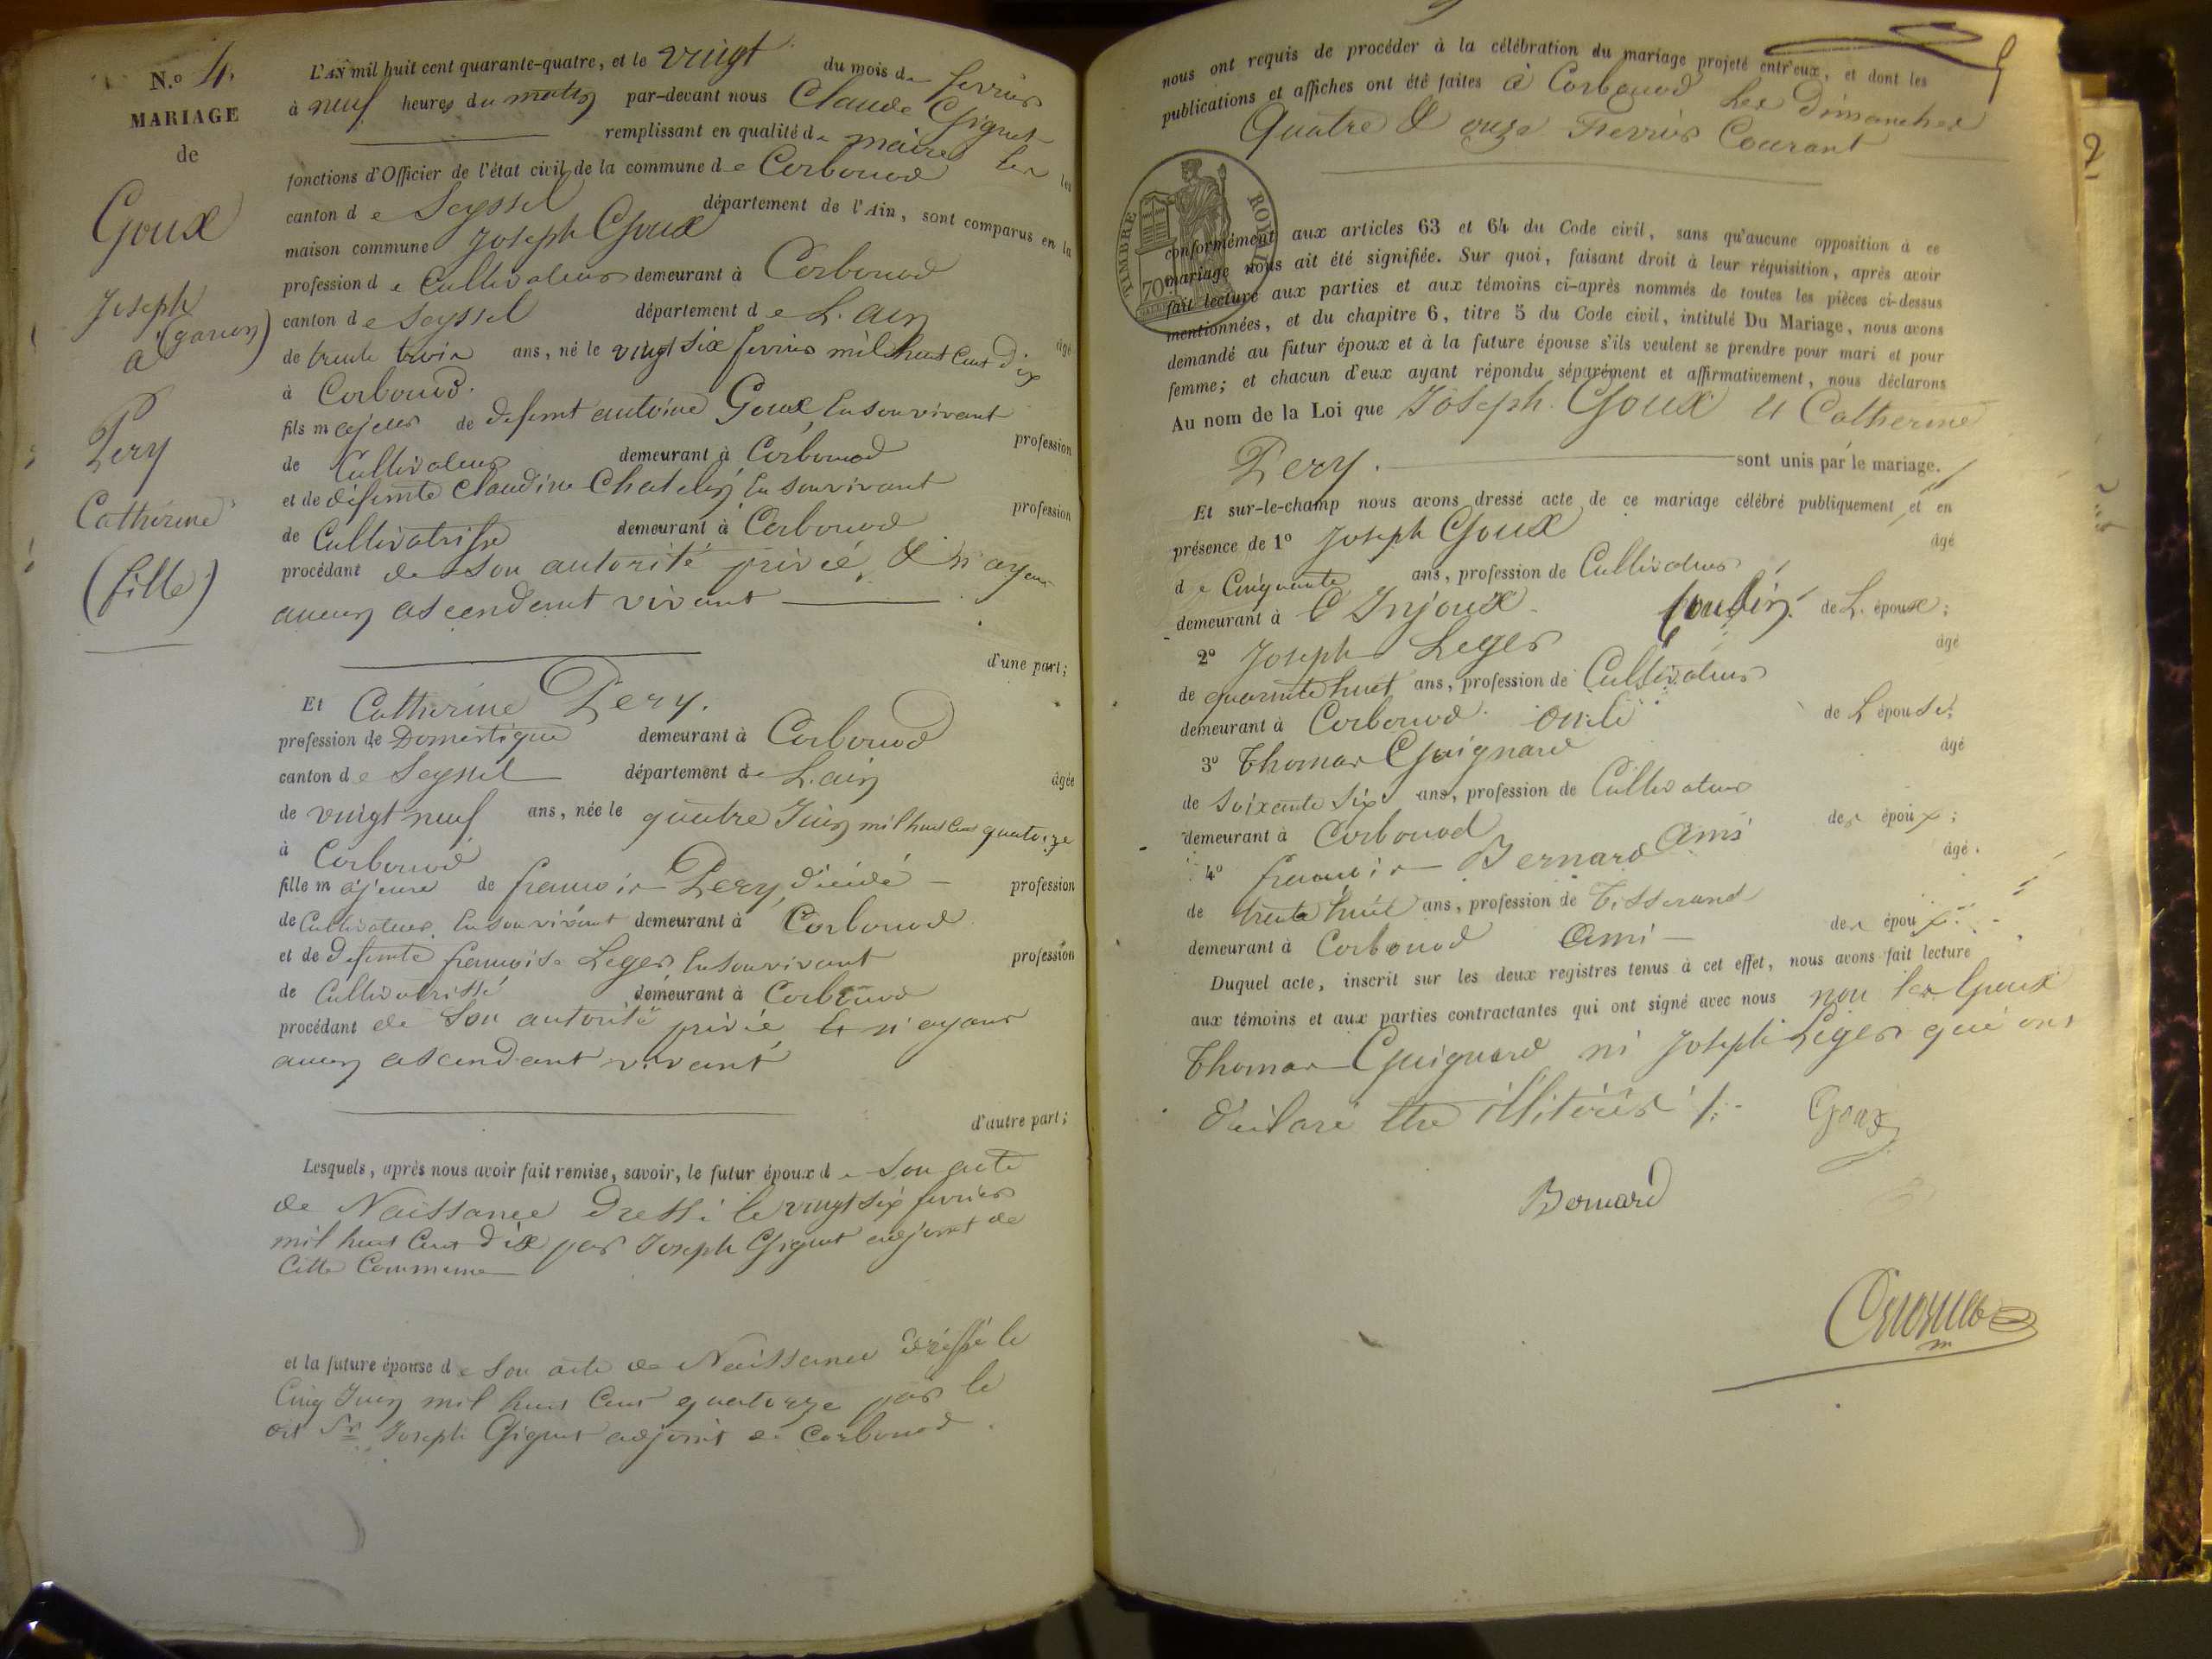 N.o 4.
MARIAGE
de
Goux
Joseph
(garcon)
a
Pery
Catherine
(fille)
L'AN mil huit cent quarante-quatre, et le vingt du mois de fevrier
à neuf heures du matin par-devant nous Claude Gignet
remplissant en qualité de maire les
fonctions d'Officier de l'état civil de la commune de Corbonod les
canton de Seyssel département de l'Ain, sont comparus en la
maison commune Joseph Goux
profession de Cultivateur demeurant à Corbonod
canton de Seyssel département de L'ain âgé
de trente trois ans, né le vingt six fevrier mil huit Cent dix
à Corbonod.
fils majeur de defunt antoine Goux En son vivant profession
de Cultivateur demeurant à Corbonod
et de défunte Claudine Chatelin En son vivant profession
de Cultivatrisse demeurant à Corbonod
procédant de son autorité privée, & n'ayant
aucun ascendant vivant
d'une part;
Et Catherine Pery.
profession de Domestique demeurant à Corbonod
canton de Seyssel département de L'ain âgée
de vingt neuf ans, née le quatre Juin mil huit Cent quatorze
à Corbonod
fille majeure de francois Pery, décédé profession
de Cultivateur En son vivant demeurant à Corbonod
et de defunte francoise Leger En son vivant profession
de Cultivatrisse demeurant à Corbonod
procédant de son autorité privée Et n'ayant
aucun ascendant vivant
d'autre part;
Lesquels, après nous avoir fait remise, savoir, le futur époux de son acte
de Naissance Dressé le vingt six fevrier
mil huit Cent dix par Joseph Gignet adjoint de
Cette Commune
et la future épouse de son acte de Naissance dréssé le
Cinq Juin mil huit Cent quatorze par le
dit Sr Joseph Gignet adjoint de Corbonod.
nous ont requis de procéder à la célébration du mariage projeté entr'eux, et dont les
publications et affiches ont été faites à Corbonod Les Dimanches
Quatre & onze Fevrier Courant
TIMBRE ROYAL
70
conformément aux articles 63 et 64 du Code civil, sans qu'aucune opposition à ce
mariage nous ait été signifiée. Sur quoi, faisant droit à leur réquisition, après avoir
fait lecture aux parties et aux témoins ci-après nommés de toutes les pièces ci-dessus
mentionnées, et du chapitre 6, titre 5 du Code civil, intitulé Du Mariage, nous avons
demandé au futur époux et à la future épouse s'ils veulent se prendre pour mari et pour
femme; et chacun d'eux ayant répondu séparément et affirmativement, nous déclarons
Au nom de la Loi que Joseph Goux et Catherine
Pery. sont unis par le mariage.
Et sur-le-champ nous avons dressé acte de ce mariage célébré publiquement et en
présence de 1o Joseph Goux âgé
de Cinquante ans, profession de Cultivateur
demeurant à Injoux Cousin de L'époux;
2o Joseph Leger âgé
de quarante huit ans, profession de Cultivateur
demeurant à Corbonod. oncle de L'épouse;
3o Thomas Guignard âgé
de soixante six ans, profession de Cultivateur
demeurant à Corbonod Ami des époux;
4o francois Bernard âgé
de trente huit ans, profession de Tisserand
demeurant à Corbonod Ami des époux
Duquel acte, inscrit sur les deux registres tenus à cet effet, nous avons fait lecture
aux témoins et aux parties contractantes qui ont signé avec nous non les Epoux
Thomas Guignard ni Joseph Leger qui ont
déclaré être illitérés /.
Goux
Bernard